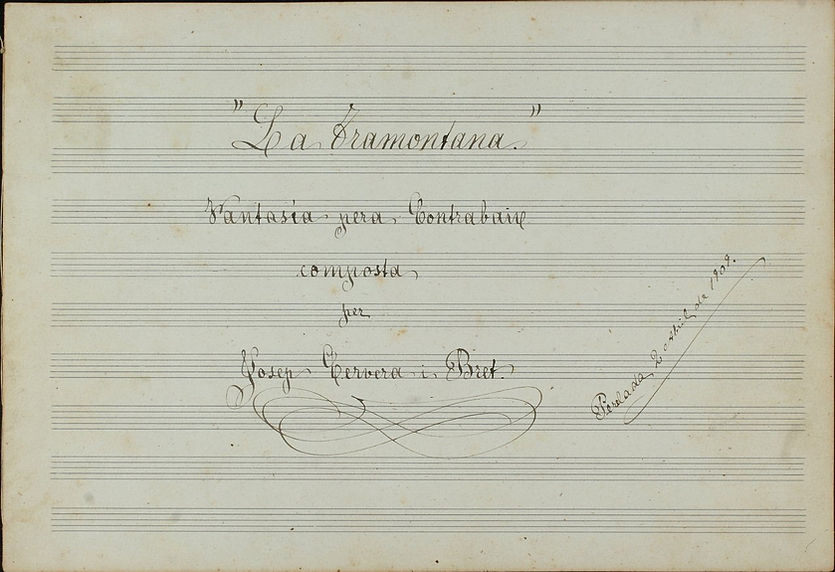 "La Tramontana."
Fantasía pera Contrabaix
composta
per
Josep Cervera i Bret.
Peralada 2 Abril de 1909.